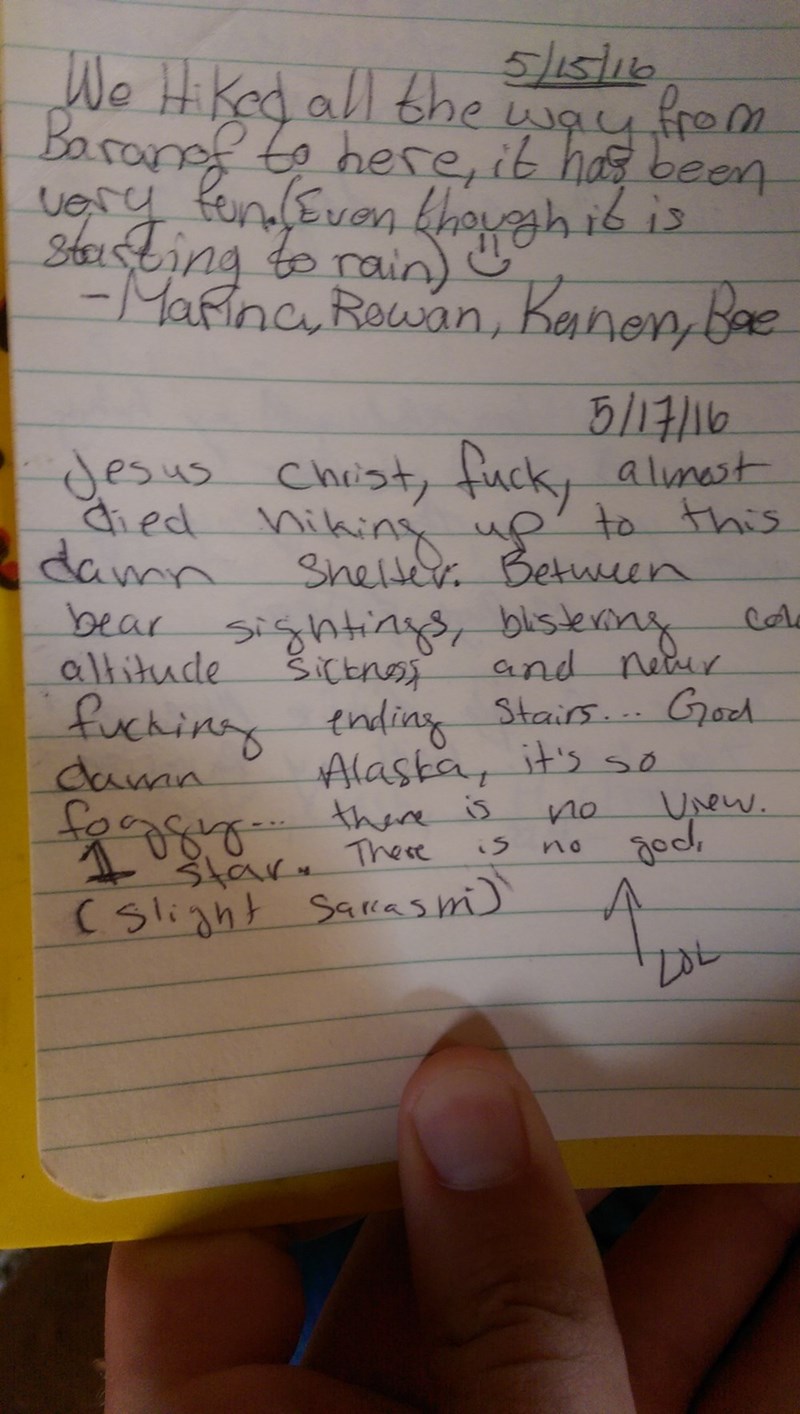 5/15/16
We Hiked all the way from
Baranof to here, it has been
very fun. (Even though it is
starting to rain)
-Marina, Rowan, Kenen, Bae
5/17/16
Jesus Christ, fuck, almost
died hiking up to this
damn shelter. Between
bear sightings, blistering
altitude sickness, and never
fucking ending stairs... God
damn Alaska, it's so
foggy... there is no view.
1 star. There is no god.
(slight sarcasm)
LOL